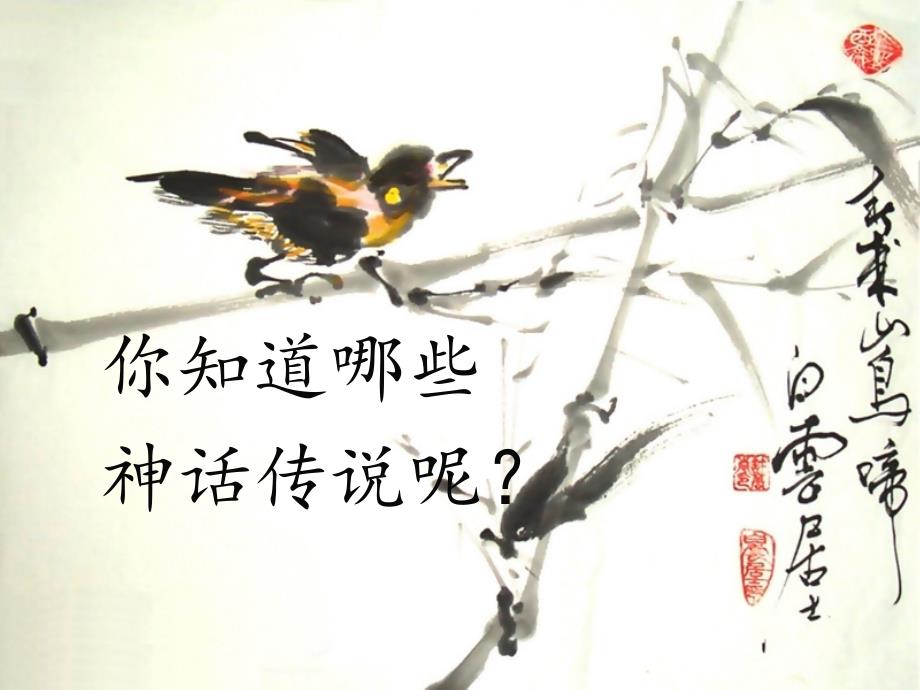 你知道哪些
神话传说呢？
山鸟啼
白云居士